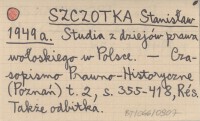 SZCZOTKA Stanisław
1949a. Studia z dziejów prawa
wołoskiego w Polsce. — Cza-
sopismo Prawno-Historyczne
(Poznań) t. 2, s. 355-418, Rés.
Także odbitka.